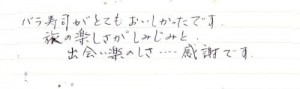 バラ寿司がとてもおいしかったです
旅の楽しさがしみじみと、
出会い楽のしさ....感謝です.